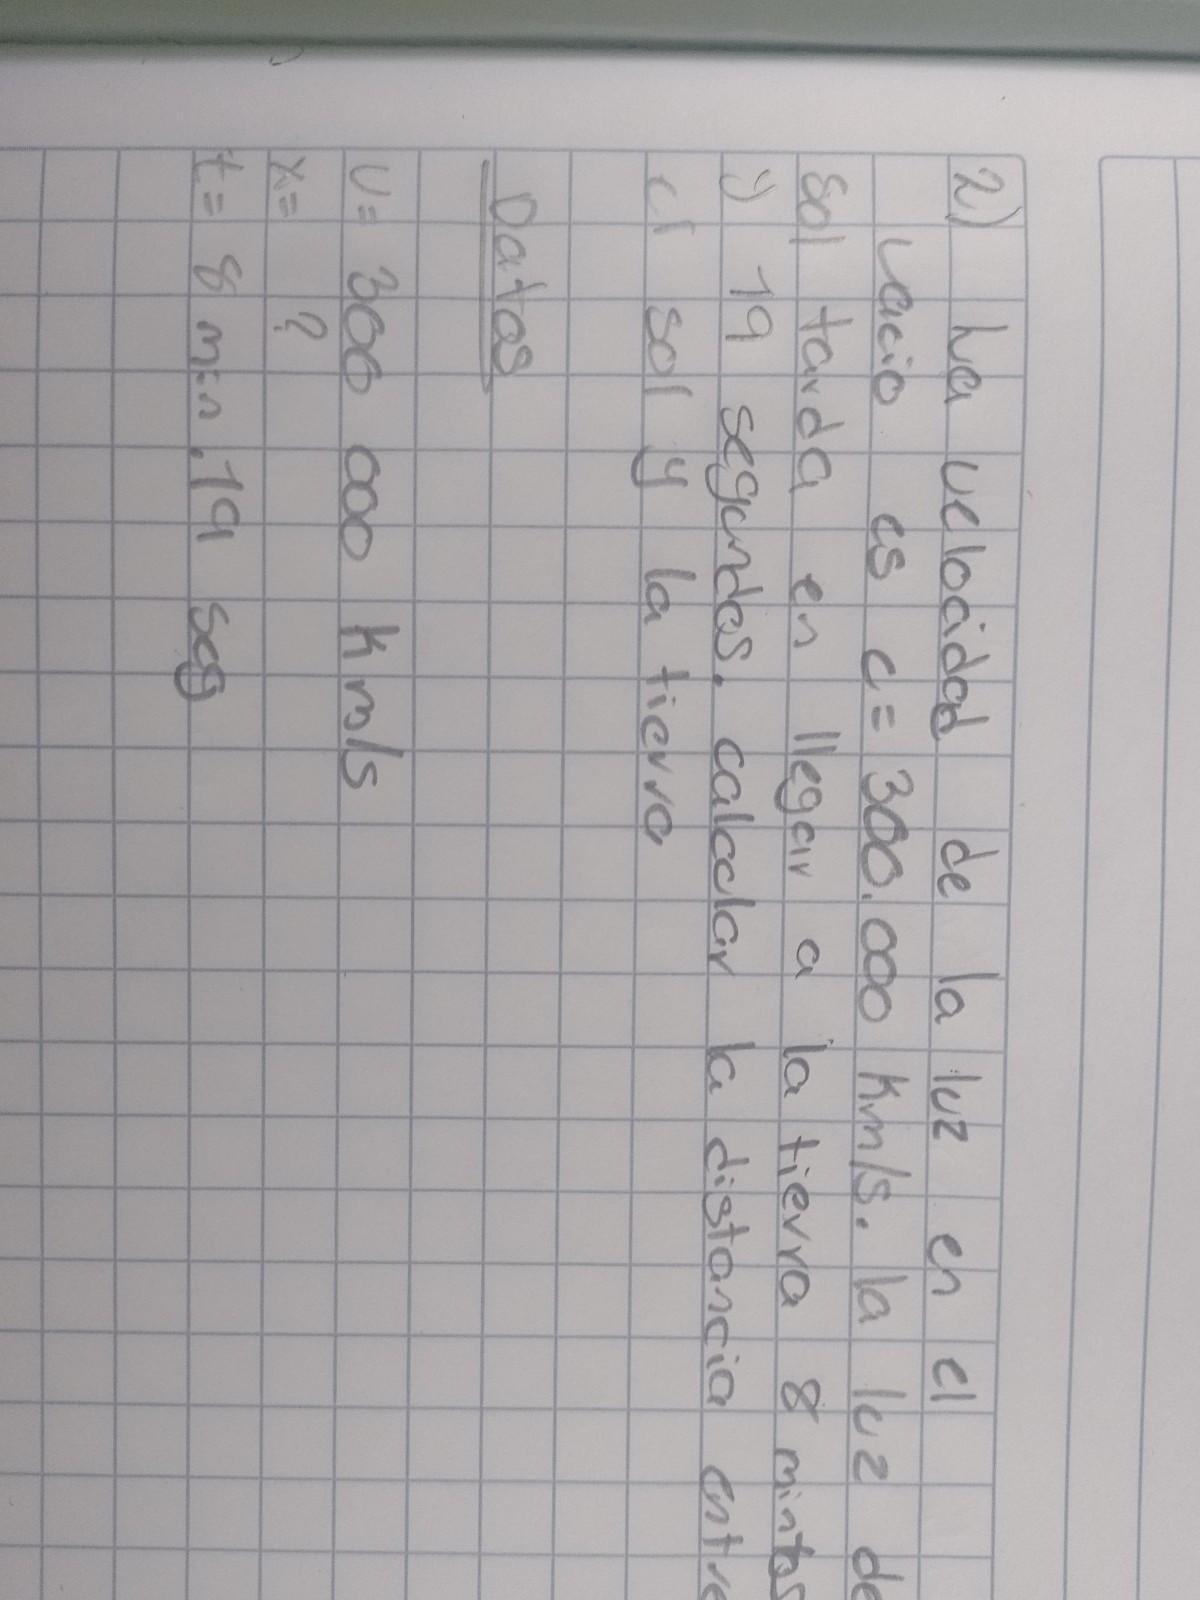 2) La velocidad de la luz en el
vacio es c = 300.000 Km/s. la luz de
sol tarda en llegar a la tierra 8 mintos
y 19 segundos. calcular la distancia entre
el sol y la tierra
Datos
V = 300 000 Km/s
X = ?
t = 8 min. 19 seg